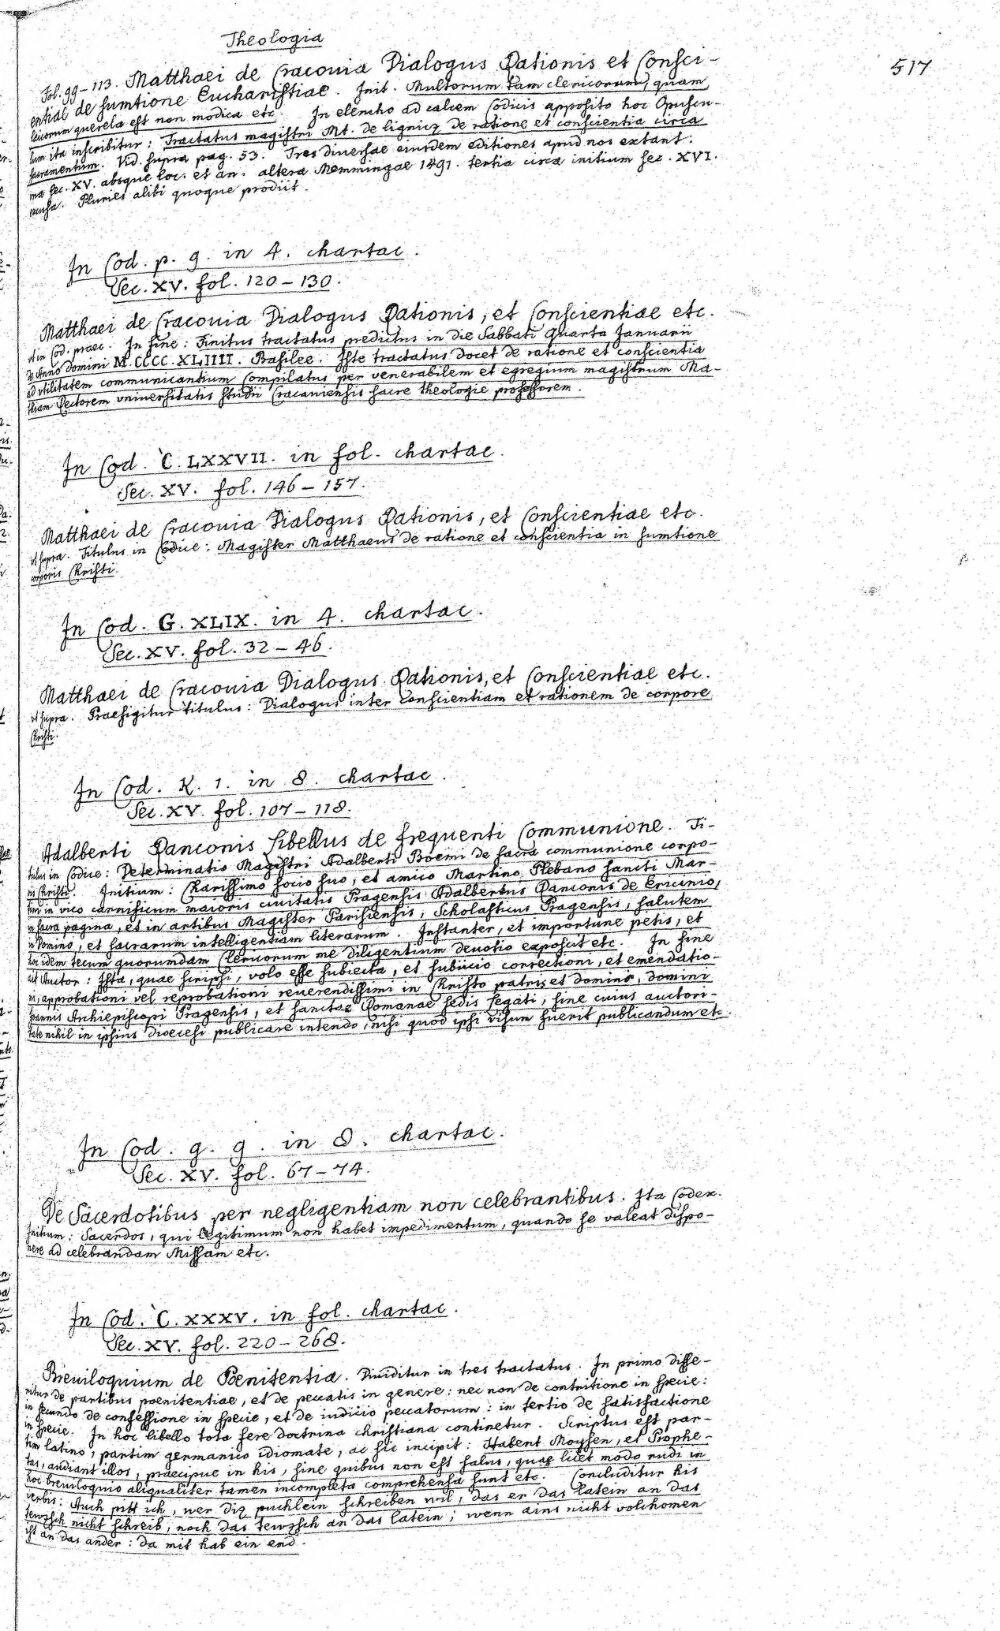 Theologia
517
Fol. 99-113. Matthaei de Cracouia Dialogus Rationis et Consci-
entiae de sumtione Eucharistiae. Init. Multorum tam clericorum, quam
laicorum querela est non modica etc. In elencho ad calcem Codicis apposito hoc Opuscu-
lum ita inscribitur: Tractatus magistri Mt. de lignicz de ratione et conscientia circa
sacramentum. Vid. supra pag. 53. Tres diuersae eiusdem editiones apud nos extant:
ma sec. XV. absque loc. et an. altera Memmingae 1491. tertia circa initium sec. XVI.
excusa. Pluries alibi quoque prodiit.
In Cod. p. 9. in 4. chartac.
Sec. XV. fol. 120-130.
Matthaei de Cracouia Dialogus Rationis, et Conscientiae etc.
vt in Cod. praec. In fine: Finitus tractatus predictus in die Sabbati Quarta Januarii
de Anno domini M.CCCC.XLIIII. Basilee. Iste tractatus docet de ratione et conscientia
ad vtilitatem communicantium Compilatus per venerabilem et egregium magistrum Ma-
theum Rectorem vniuersitatis studii Cracouiensis sacre theologie professorem.
In Cod. C. LXXVII. in fol. chartac.
Sec. XV. fol. 146-157.
Matthaei de Cracouia Dialogus Rationis, et Conscientiae etc.
vt supra. Titulus in Codice: Magister Matthaeus de ratione et conscientia in sumtione
corporis Christi.
In Cod. G. XLIX. in 4. chartac.
Sec. XV. fol. 32-46.
Matthaei de Cracouia Dialogus Rationis, et Conscientiae etc.
vt supra. Praefigitur titulus: Dialogus inter conscientiam et rationem de corpore
Christi.
In Cod. K. 1. in 8. chartac.
Sec. XV. fol. 107-118.
Adalberti Ranconis libellus de frequenti Communione. Ti-
tulus in Codice: Determinatio Magistri Adalberti Boemi de sacra communione corpo-
ris Christi. Initium: Charissimo socio suo, et amico Martino, Plebano sancti Mar-
tini in vico carnificum maioris ciuitatis Pragensis Adalbertus Ranconis de Ericinio,
in sacra pagina, et in artibus Magister Parisiensis, Scholasticus Pragensis, salutem
in Domino, et sacrarum intelligentiam literarum. Instanter, et importune petis, et
hoc idem tecum quorumdam Clericorum me diligentium deuotio exposcit etc. In fine
ait Auctor: Ista, quae scripsi, volo esse subiecta, et subiicio correctioni, et emendatio-
ni, approbationi vel reprobationi reuerendissimi in Christo patris et domini, domini
Joannis Archiepiscopi Pragensis, et sanctae Romanae sedis legati, sine cuius auctori-
tate nihil in ipsius dioecesi publicare intendo, nisi quod ipsi visum fuerit publicandum etc.
In Cod. g. 9. in 8. chartac.
Sec. XV. fol. 67-74.
De Sacerdotibus per negligentiam non celebrantibus. Ita Codex.
Initium: Sacerdos, qui legitimum non habet impedimentum, quando se valeat dispo-
nere ad celebrandam Missam etc.
In Cod. C. XXXV. in fol. chartac.
Sec. XV. fol. 220-268.
Breuiloquium de Poenitentia. Diuiditur in tres tractatus. In primo disse-
ritur de partibus poenitentiae, et de peccatis in genere: nec non de contritione in specie:
in secundo de confessione in specie, et de iudicio peccatorum: in tertio de satisfactione
in specie. In hoc libello tota fere doctrina christiana continetur. Scriptus est par-
tim latino, partim germanico idiomate, ac sic incipit: Habent Moysen, et Prophe-
tas, audiant illos, praecipue in his, sine quibus non est salus, quae licet modo rudi in
hoc breuiloquio aliqualiter tamen incompleta comprehensa sunt etc. Concluditur his
verbis: Auch pitt ich, wer diz puchlein schreiben wil, das er das latein an das
tewzsch nicht schreib, noch das tewzsch an das latein; wenn ains nicht volkhomen
ist an das ander: da mit hab ein end.